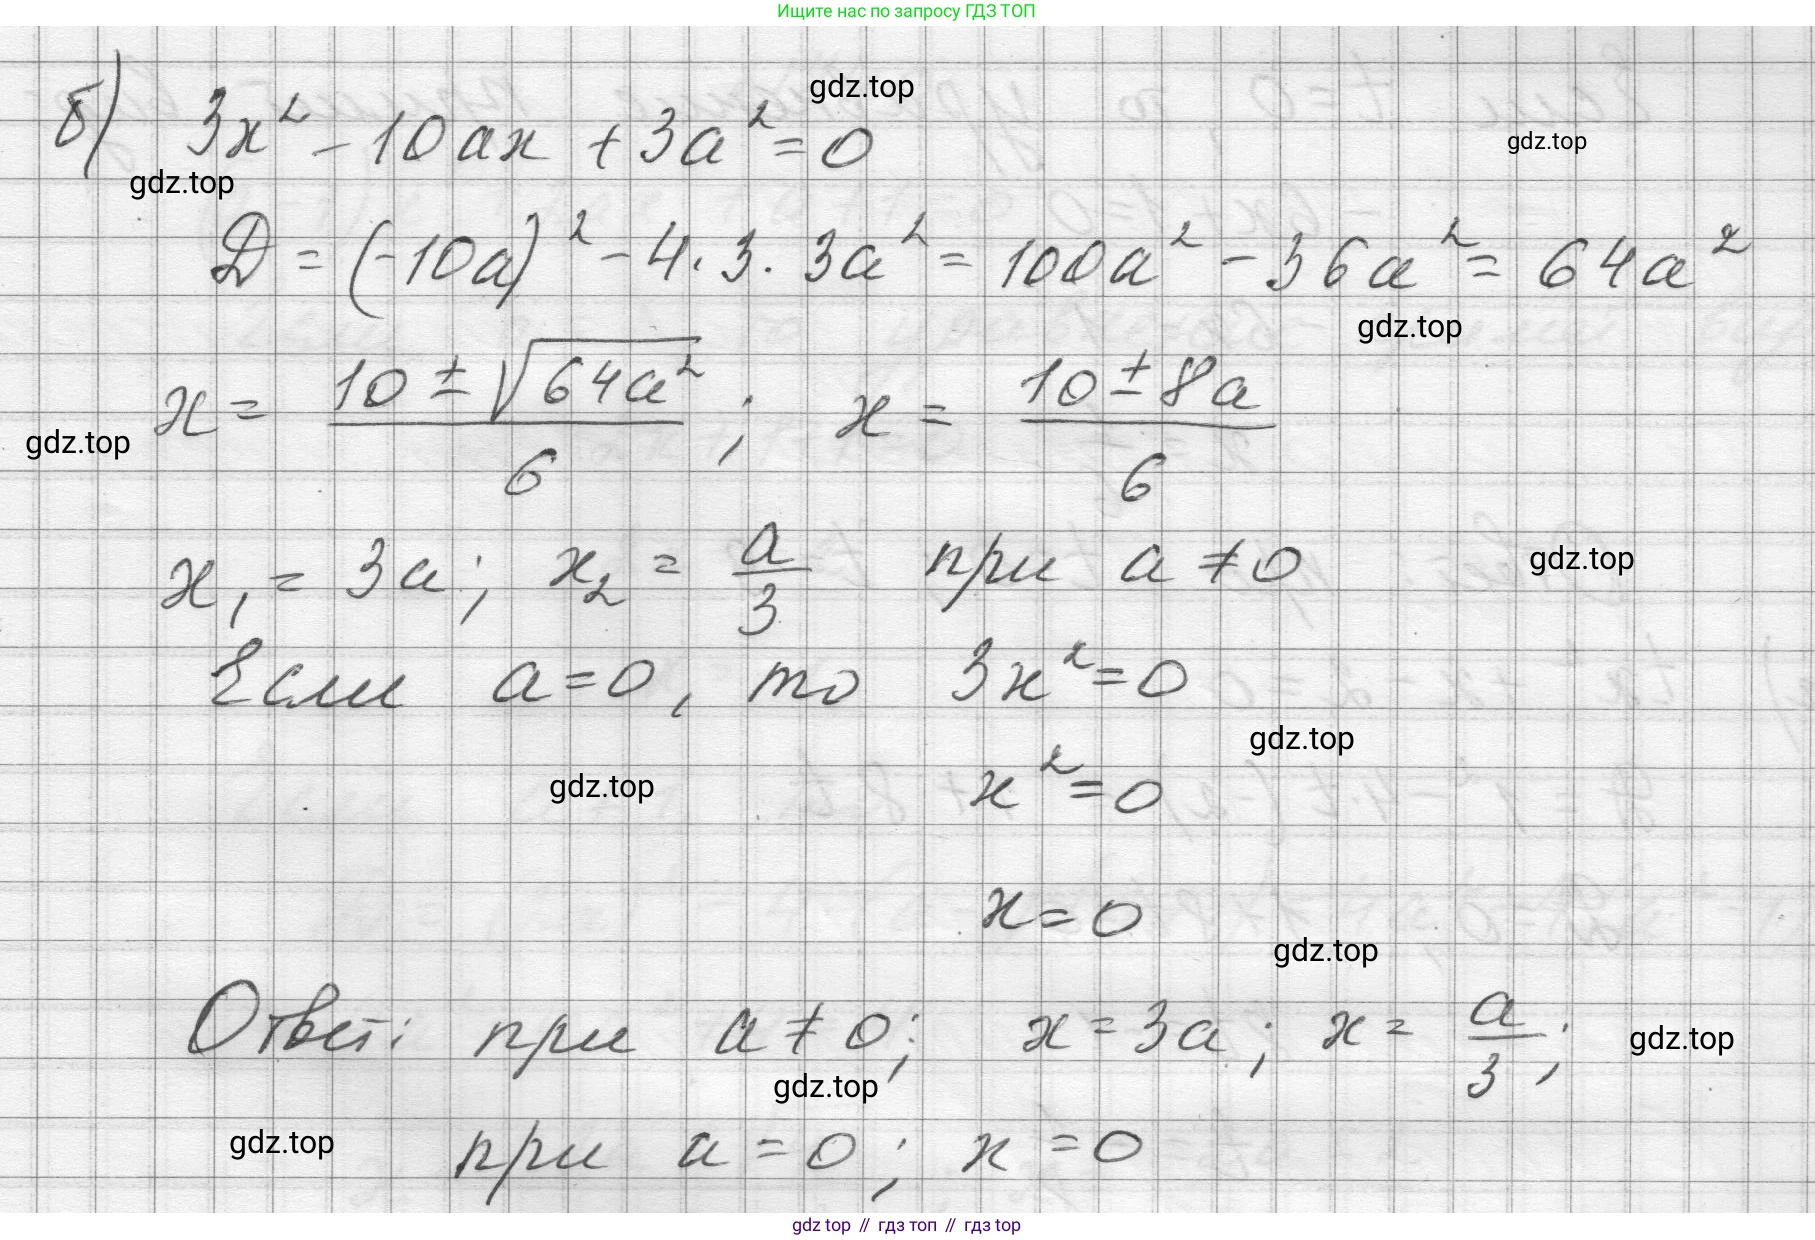 Ищите нас по запросу ГДЗ ТОП
gdz.top
б) 3x² - 10ax + 3a² = 0
gdz.top
gdz.top
Д = (-10a)² - 4·3·3a² = 100a² - 36a² = 64a²
gdz.top
x = (10 ± √64a²)/6 ; x = (10 ± 8a)/6
gdz.top
x₁ = 3a; x₂ = a/3 при a ≠ 0
gdz.top
Если a=0, то 3x²=0
gdz.top
x²=0
gdz.top
x=0
gdz.top
Ответ: при a ≠ 0; x = 3a; x = a/3;
gdz.top
gdz.top
при a = 0; x = 0
gdz.top
gdz top // гдз топ // гдз top